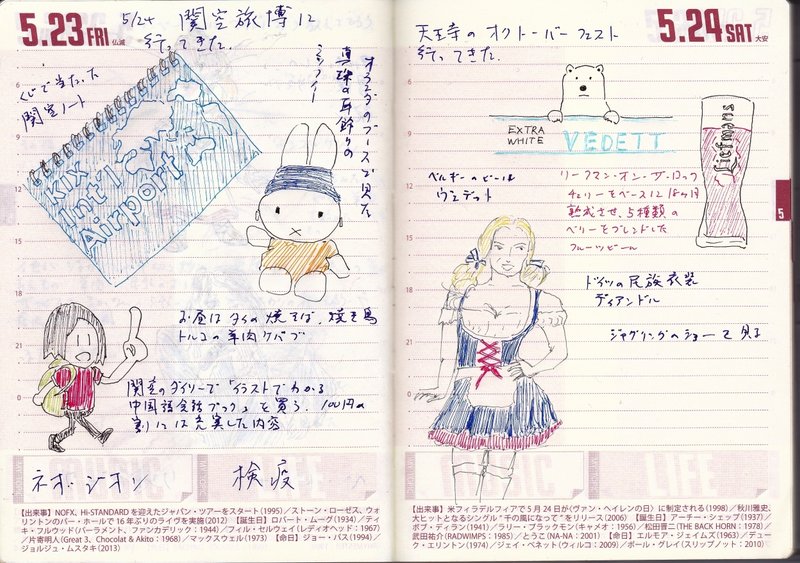 5.23 FRI 仏滅
5/24 関空旅博に
行ってきた。
くじで当たった
関空ノート
オランダのブースで見た
真珠の耳飾りの
ミッフィー
KIX
Int'l
Airport
お昼はタイの焼そば、焼き鳥
トルコの羊肉ケバブ
関空のダイソーで「イラストでわかる
中国語会話ブック」を買う。100円の
割には充実した内容
ネオ・ジオン
検疫
【出来事】NOFX、Hi-STANDARDを迎えたジャパン・ツアーをスタート(1995)／ストーン・ローゼス、ウォ
リントンのパー・ホールで16年ぶりのライヴを実施(2012)【誕生日】ロバート・ムーグ(1934)／ティ
キ・フルウッド(パーラメント、ファンカデリック：1944)／フィル・セルウェイ(レディオヘッド：1967)
／片寄明人(Great 3、Chocolat & Akito：1968)／マックスウェル(1973)【命日】ジョー・パス(1994)／
ジョルジュ・ムスタキ(2013)
5.24 SAT 大安
天王寺のオクトーバーフェスト
行ってきた。
EXTRA
WHITE
VEDETT
Liefmans
ベルギーのビール
ヴェデット
リーフマン・オン・ザ・ロック
チェリーをベースに18ヶ月
熟成させ、5種類の
ベリーをブレンドした
フルーツビール
ドイツの民族衣装
ディアンドル
ジャグリングのショーを見る
5
【出来事】米フィラデルフィアで5月24日が〈ヴァン・ヘイレンの日〉に制定される(1998)／秋川雅史、
大ヒットとなるシングル“千の風になって”をリリース(2006)【誕生日】アーチー・シェップ(1937)／
ボブ・ディラン(1941)／ラリー・ブラックモン(キャメオ：1956)／松田晋二(THE BACK HORN：1978)／
武田祐介(RADWIMPS：1985)／とうこ(NA-NA：2001)【命日】エルモア・ジェイムズ(1963)／デュー
ク・エリントン(1974)／ジェイ・ベネット(ウィルコ：2009)／ポール・グレイ(スリップノット：2010)